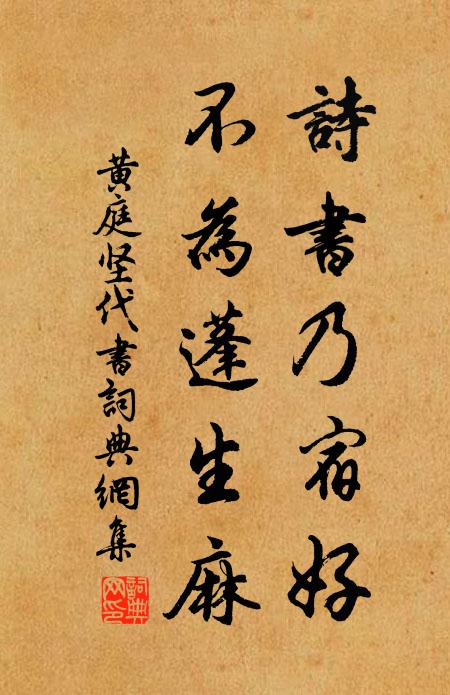 詩書乃宿好
不為蓬生麻
黄庭坚代書詞典網集
詞典網印